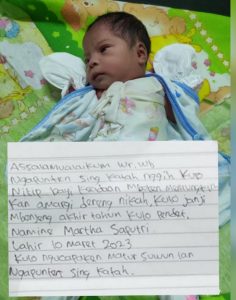 Assalamualaikum Wr. Wb
Ngapunten sing katah nggih Kulo
Nitip bayi Kasuban Mboten Menlungtur
Kan amargi Dereng nikah, Kulo janji
Mbonjeng akhir tahun Kulo Pendet,
Namine Martha Saputri
Lahir 10 Maret 2023
Kulo Ngucapaken Matur Suwun lan
Ngapunten Sing Katah.